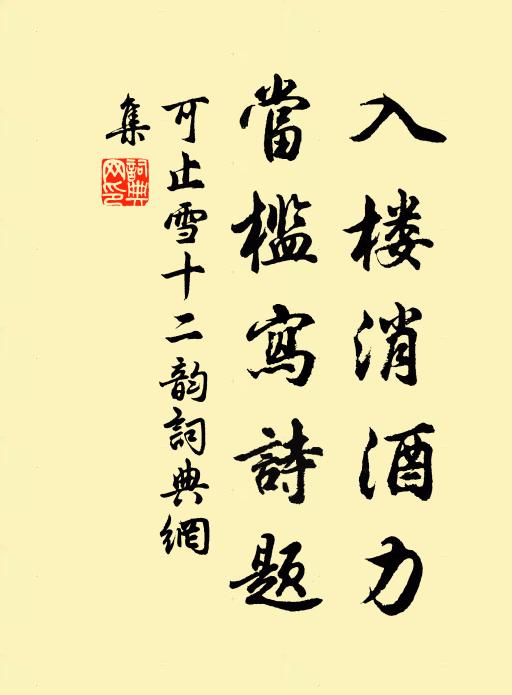 入楼消酒力
當檻寫詩題
可止雪十二韵詞典網
集
詞典網印